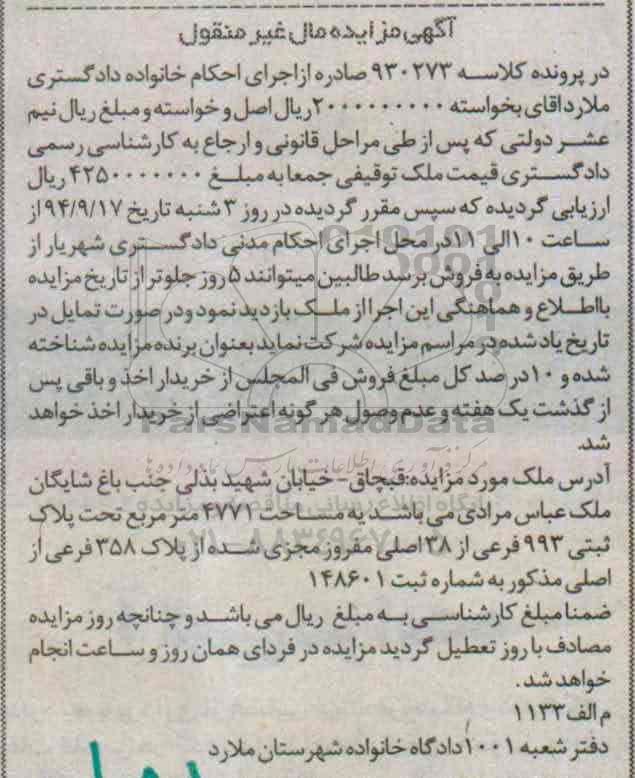 آگهی مزایده مال غیر منقول
در پرونده کلاسه ۹۳۰۲۷۳ صادره ازاجرای احکام خانواده دادگستری
ملارداقای بخواسته ۲۰۰۰۰۰۰۰۰۰ریال اصل و خواسته و مبلغ ریال نیم
عشر دولتی که پس از طی مراحل قانونی و ارجاع به کارشناسی رسمی
دادگستری قیمت ملک توقیفی جمعا به مبلغ ۴۲۵۰۰۰۰۰۰۰ ریال
ارزیابی گردیده که سپس مقرر گردیده در روز ۳ شنبه تاریخ ۹۴/۹/۱۷ از
ساعت ۱۰الی ۱۱در محل اجرای احکام مدنی دادگستری شهریار از
طریق مزایده به فروش برسد طالبین میتوانند ۵ روز جلوتر از تاریخ مزایده
بااطلاع و هماهنگی این اجرا از ملک بازدید نمود ودر صورت تمایل در
تاریخ یاد شده در مراسم مزایده شرکت نماید بعنوان برنده مزایده شناخته
شده و ۱۰در صد کل مبلغ فروش فی المجلس از خریدار اخذ و باقی پس
از گذشت یک هفته و عدم وصول هر گونه اعتراضی از خریدار اخذ خواهد
شد.
آدرس ملک مورد مزایده:قبچاق-خیابان شهید بذلی جنب باغ شایگان
ملک عباس مرادی می باشد به مساحت ۴۷۷۱ متر مربع تحت پلاک
ثبتی ۹۹۳ فرعی از ۳۸اصلی مفروز مجزی شده از پلاک ۳۵۸ فرعی از
اصلی مذکور به شماره ثبت ۱۴۸۶۰۱
ضمنا مبلغ کارشناسی به مبلغ ریال می باشد و چنانچه روز مزایده
مصادف با روز تعطیل گردید مزایده در فردای همان روز و ساعت انجام
خواهد شد.
م الف ۱۱۳۳
دفتر شعبه ۱۰۰۱دادگاه خانواده شهرستان ملارد
ParsNamadData
مرکز فرآوری اطلاعات پارس نماد داده ها